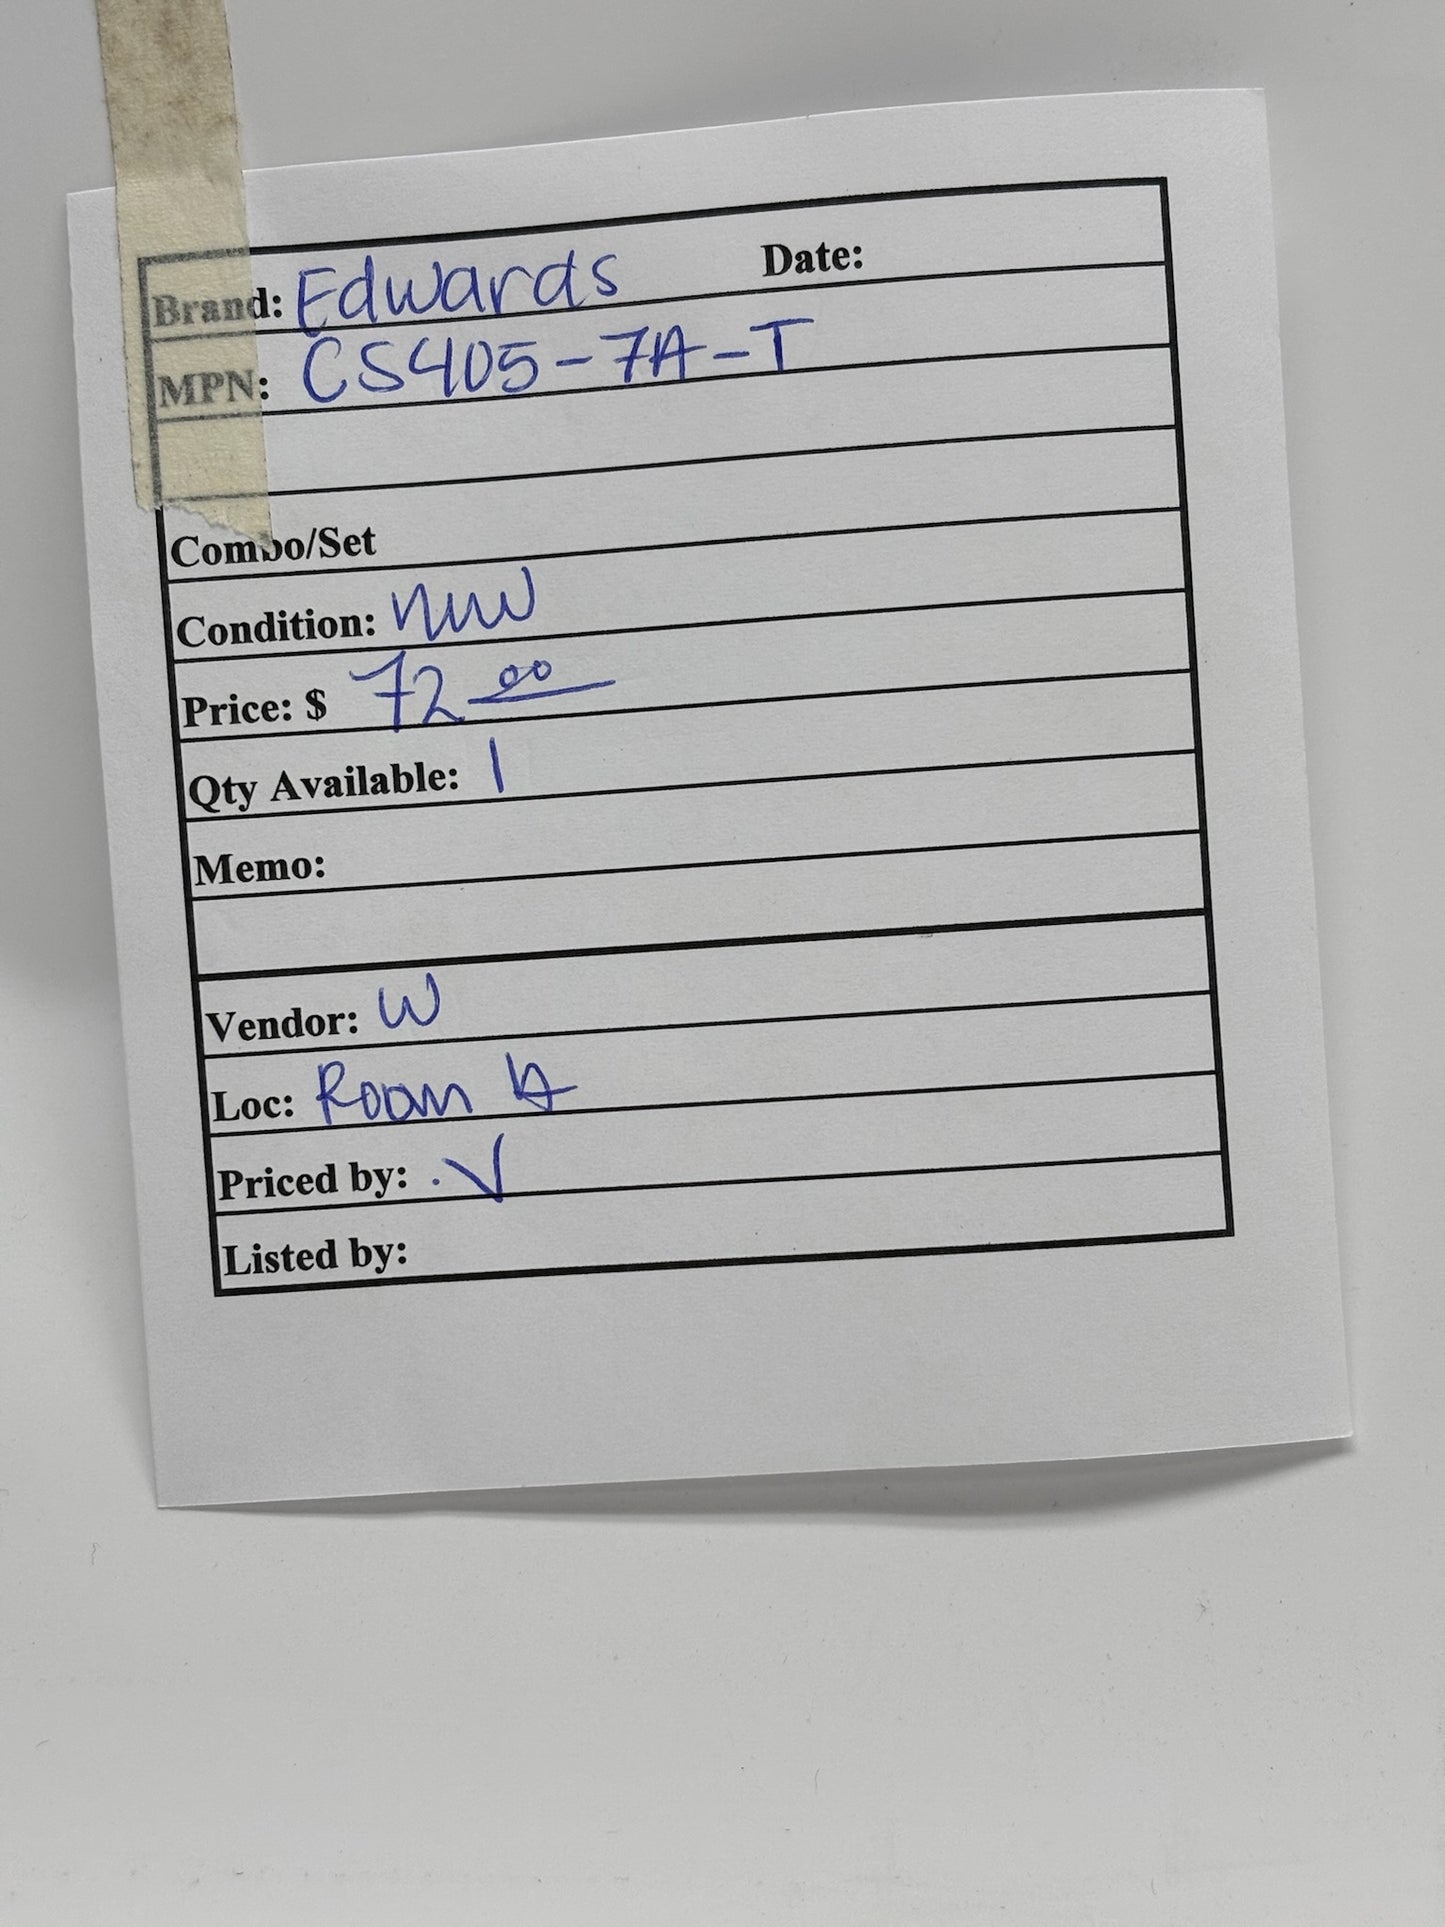 Brand: Edwards Date:
MPN: CS405-7A-T
Combo/Set
Condition: new
Price: $ 72.00
Qty Available: 1
Memo:
Vendor: W
Loc: Room
Priced by: .V
Listed by: